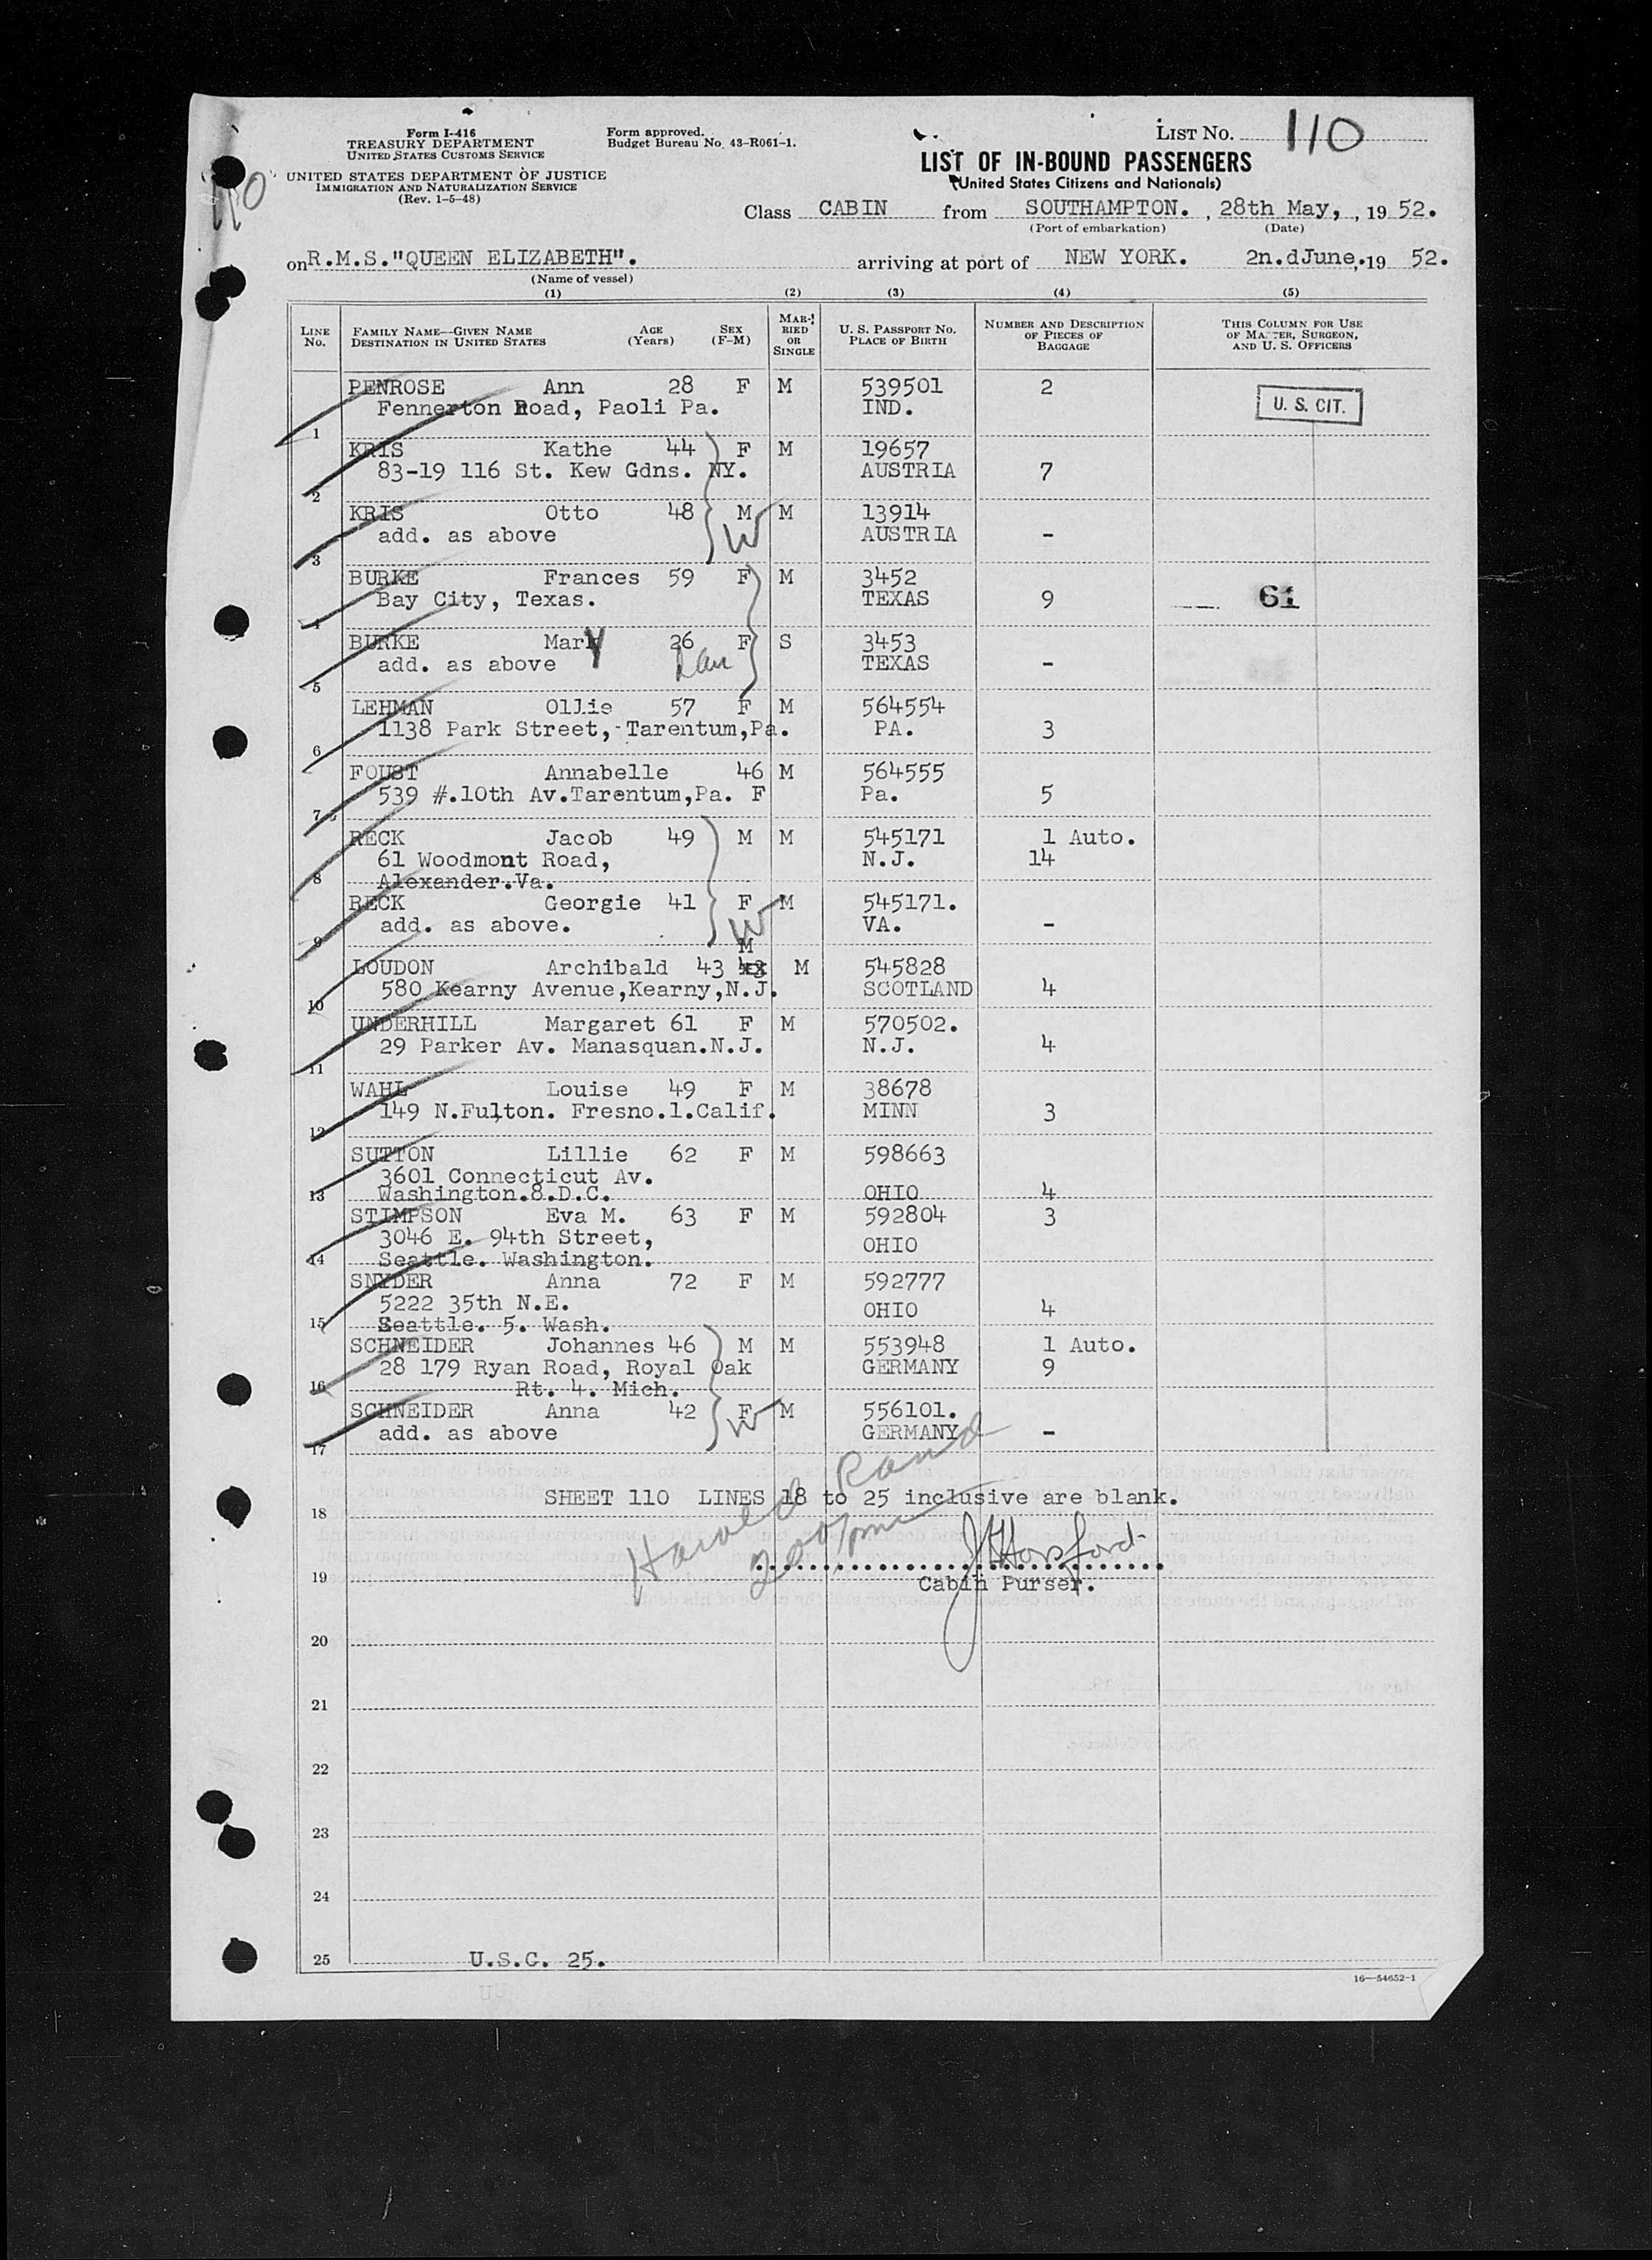 Form I-416
TREASURY DEPARTMENT
UNITED STATES CUSTOMS SERVICE
UNITED STATES DEPARTMENT OF JUSTICE
IMMIGRATION AND NATURALIZATION SERVICE
(Rev. 1-5-48)
Form approved.
Budget Bureau No. 43-R061-1.
LIST No. 110
110
LIST OF IN-BOUND PASSENGERS
(United States Citizens and Nationals)
Class CABIN from SOUTHAMPTON. , 28th May, , 19 52.
(Port of embarkation) (Date)
on R.M.S."QUEEN ELIZABETH". arriving at port of NEW YORK. 2n.dJune,.19 52.
(Name of vessel)
(1) (2) (3) (4) (5)
LINE No. FAMILY NAME—GIVEN NAME DESTINATION IN UNITED STATES AGE (Years) SEX (F-M) MARRIED OR SINGLE U. S. PASSPORT NO. PLACE OF BIRTH NUMBER AND DESCRIPTION OF PIECES OF BAGGAGE THIS COLUMN FOR USE OF MASTER, SURGEON, AND U. S. OFFICERS
PENROSE Ann 28 F M 539501 2
Fennerton Road, Paoli Pa. IND. U. S. CIT.
1
KRIS Kathe 44 F M 19657
83-19 116 St. Kew Gdns. NY. AUSTRIA 7
2
KRIS Otto 48 M M 13914
add. as above W AUSTRIA -
3
BURKE Frances 59 F M 3452
Bay City, Texas. TEXAS 9 61
4
BURKE Mary 26 F S 3453
add. as above Dau TEXAS -
5
LEHMAN Ollie 57 F M 564554
1138 Park Street,-Tarentum,Pa. PA. 3
6
FOUST Annabelle 46 M 564555
539 #.10th Av.Tarentum,Pa. F Pa. 5
7
RECK Jacob 49 M M 545171 1 Auto.
61 Woodmont Road, N.J. 14
8 Alexander.Va.
RECK Georgie 41 F M 545171.
add. as above. W VA. -
9
M
LOUDON Archibald 43 43 M 545828
580 Kearny Avenue,Kearny,N.J. SCOTLAND 4
10
UNDERHILL Margaret 61 F M 570502.
29 Parker Av. Manasquan.N.J. N.J. 4
11
WAHL Louise 49 F M 38678
149 N.Fulton. Fresno.1.Calif. MINN 3
12
SUTTON Lillie 62 F M 598663
3601 Connecticut Av.
13 Washington.8.D.C. OHIO 4
STIMPSON Eva M. 63 F M 592804 3
3046 E. 94th Street, OHIO
14 Seattle. Washington.
SNYDER Anna 72 F M 592777
5222 35th N.E. OHIO 4
15 Seattle. 5. Wash.
SCHNEIDER Johannes 46 M M 553948 1 Auto.
28 179 Ryan Road, Royal Oak GERMANY 9
16 Rt. 4. Mich.
SCHNEIDER Anna 42 F M 556101.
add. as above W GERMANY -
17
Harold Rand
SHEET 110 LINES 18 to 25 inclusive are blank.
18
200pm
J Horsford
19
Cabin Purser.
20
21
22
23
24
25 U.S.C. 25.
16—54652-1